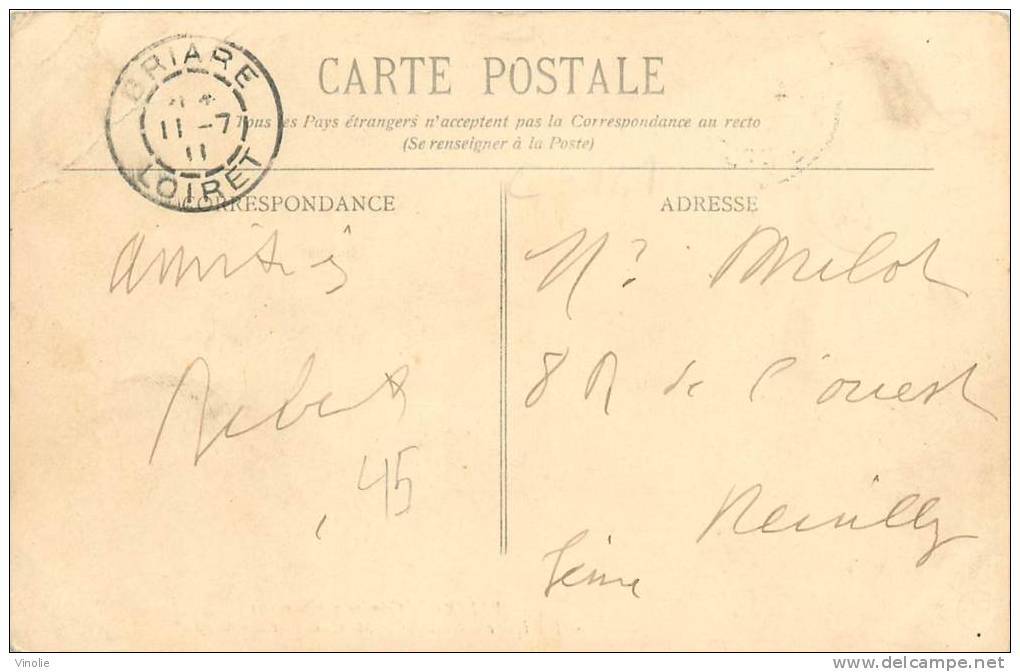 BRIARE
11 -7
11
LOIRET
CARTE POSTALE
Tous les Pays étrangers n'acceptent pas la Correspondance au recto
(Se renseigner à la Poste)
CORRESPONDANCE
Amitiés
45
ADRESSE
8 R de l'ouest
Neuilly
Seine
Vinolie
www.delcampe.net